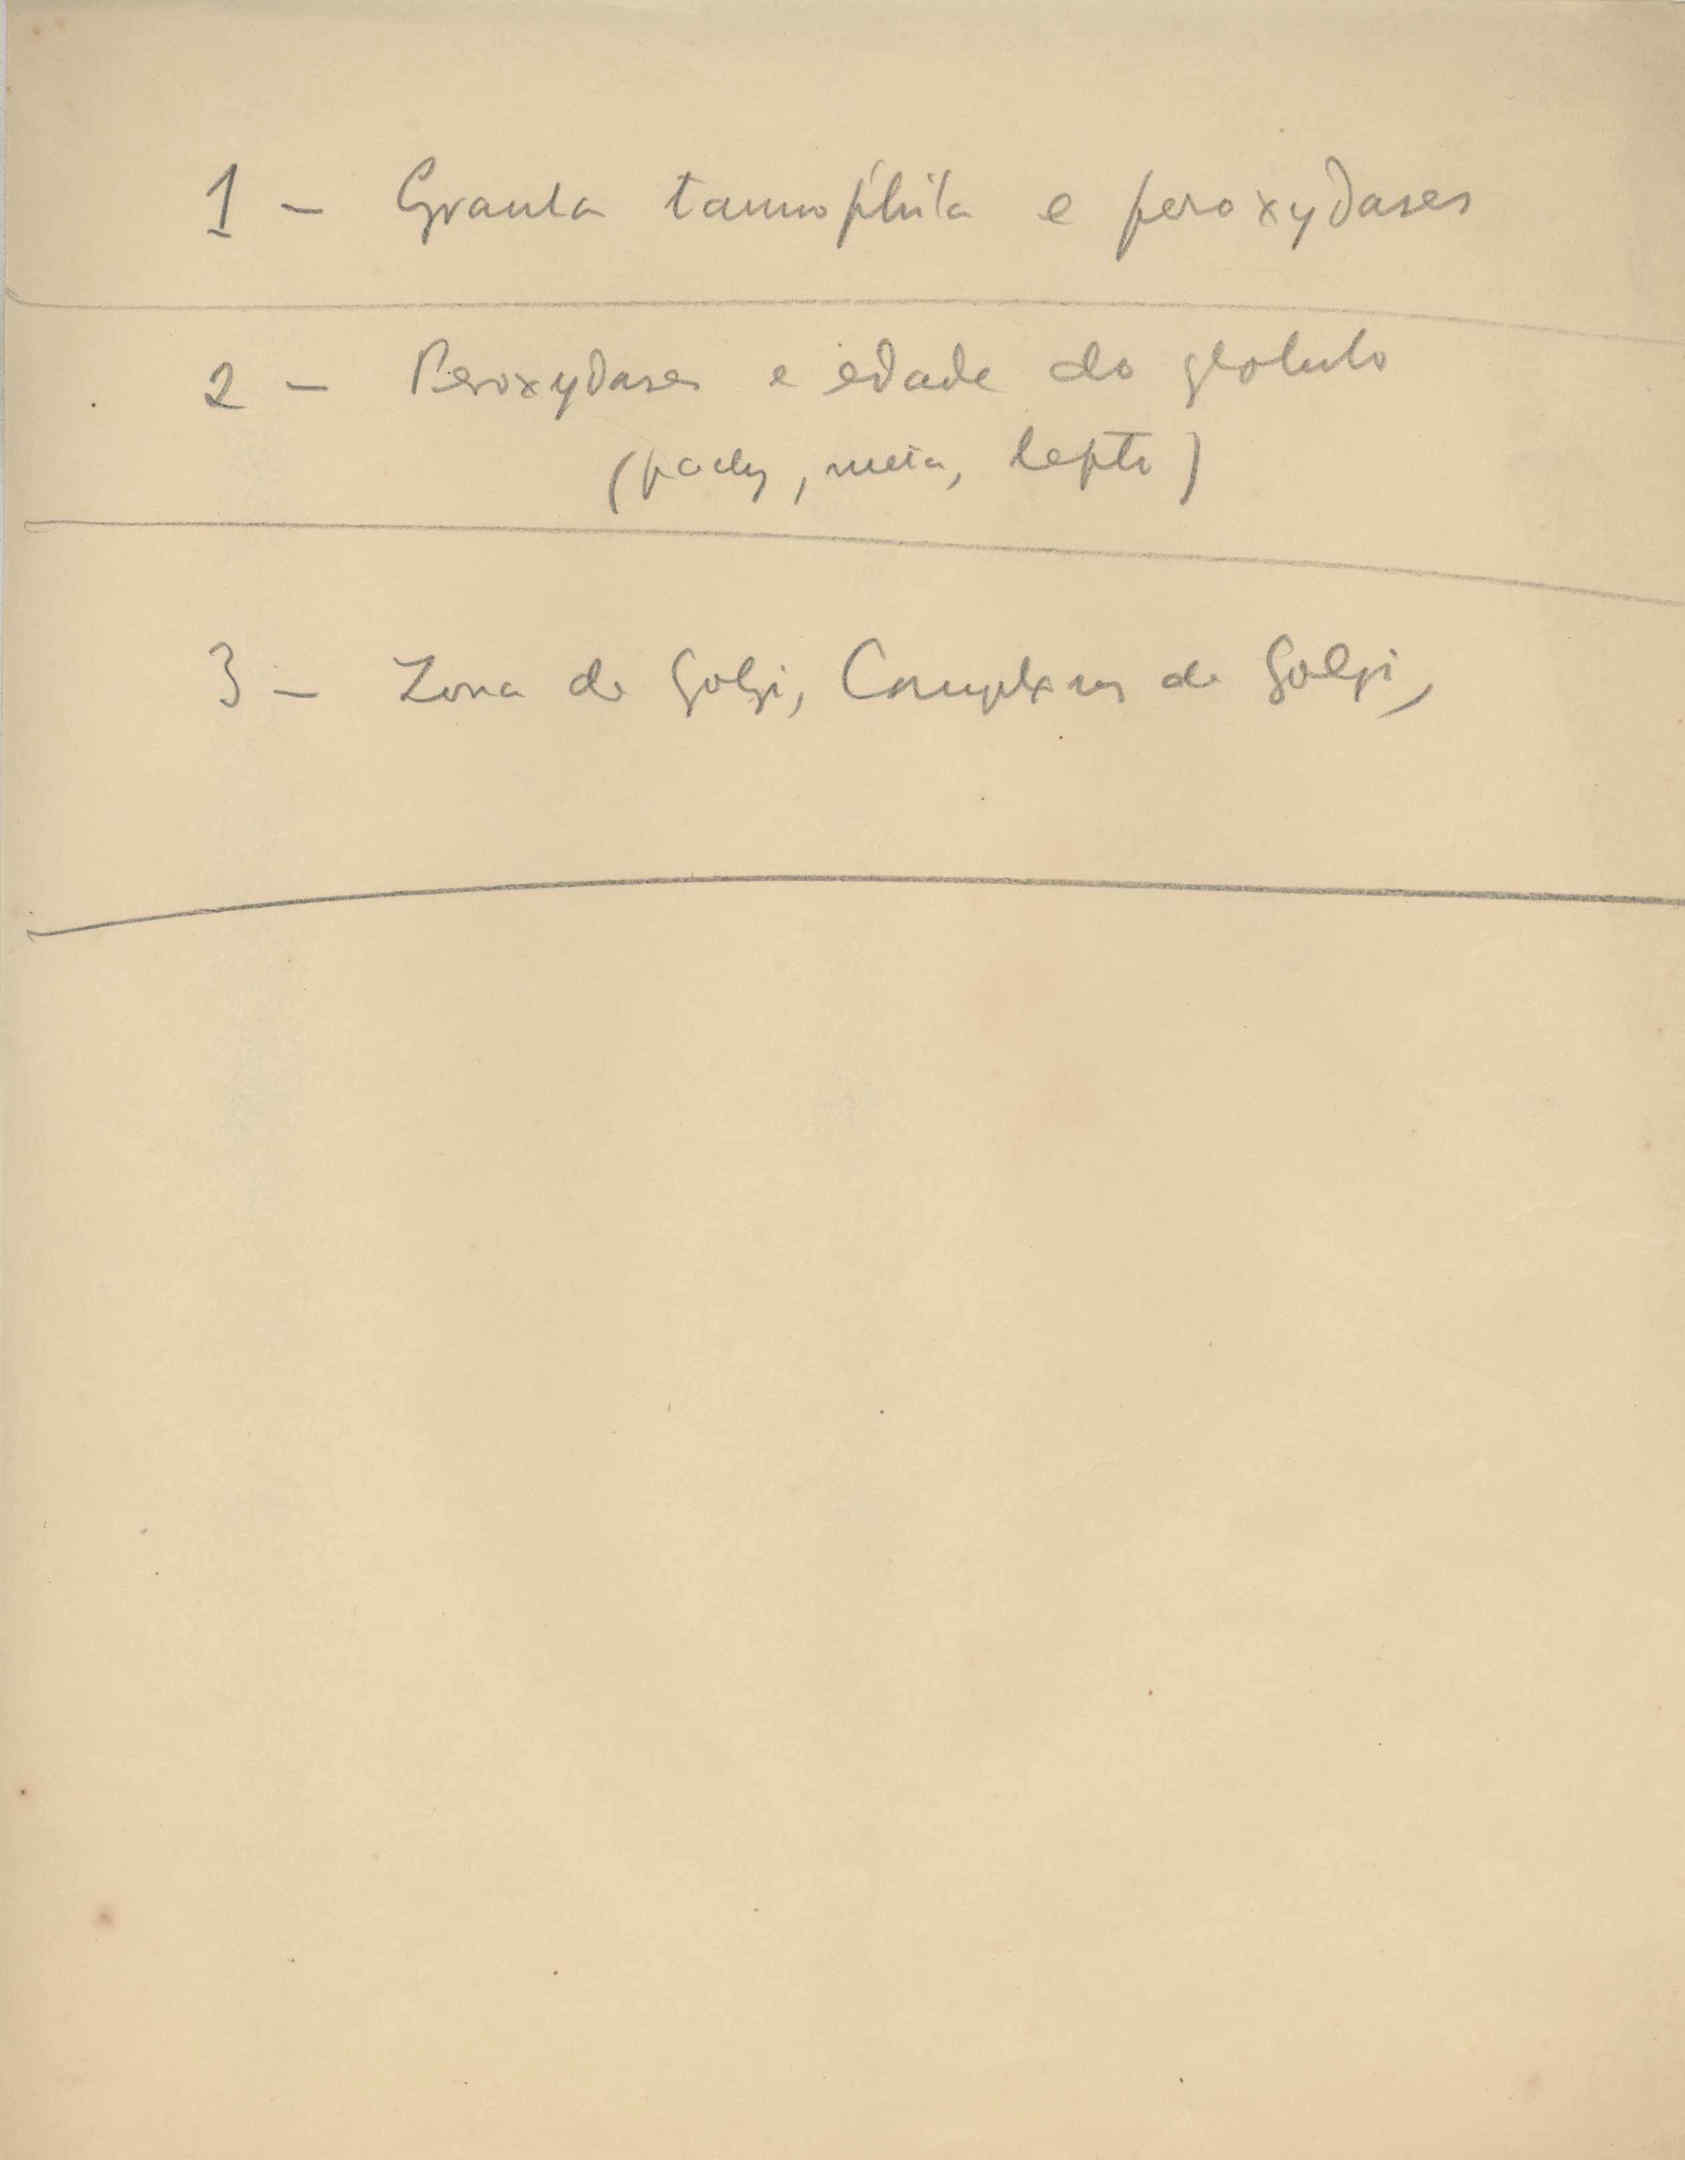 1 - Granula tannophila e peroxydases
2 - Peroxydases e edade do globulo
(pachy, meta, lepto)
3 - Zona de Golgi, Complexos de Golgi,